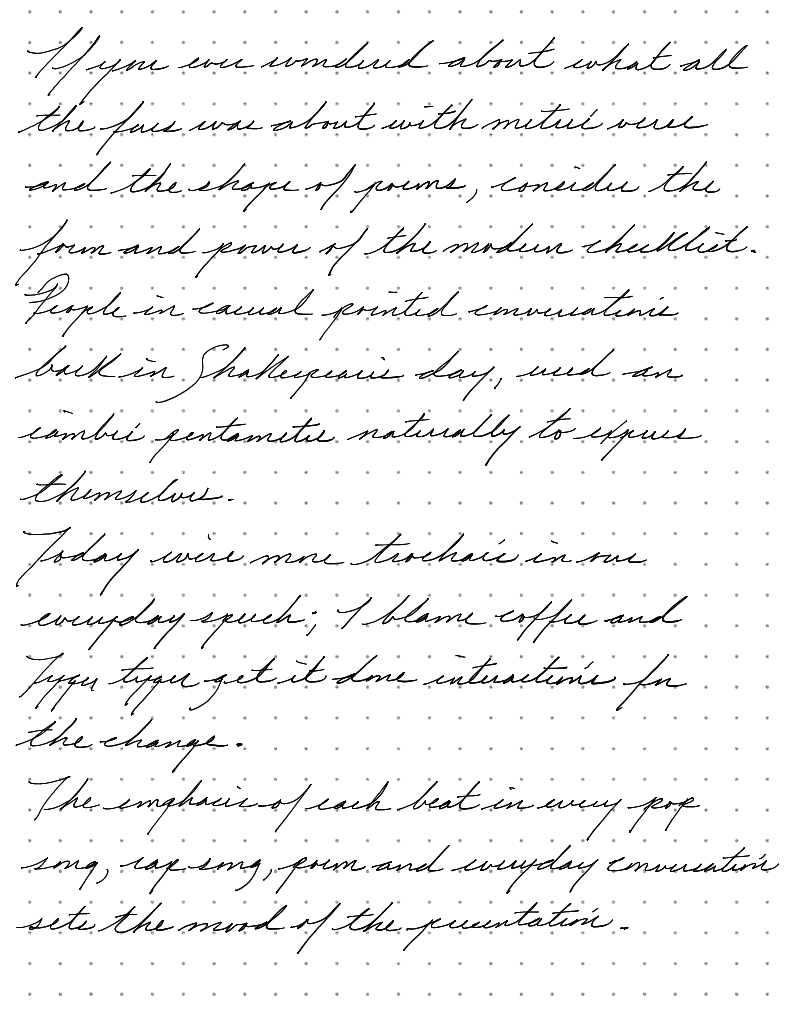 If you ever wondered about what all
the fuss was about with metric verse
and the shape of poems, consider the
form and power of the modern checklist.
People in casual pointed conversations
back in Shakespeare's day, used an
iambic pentameter naturally to express
themselves.
Today we're more trochaic in our
everyday speech; I blame coffee and
Tyger tyger get it done interactions for
the change.
The emphasis of each beat in every pop
song, rap song, poem and everyday conversation
sets the mood of the presentation.